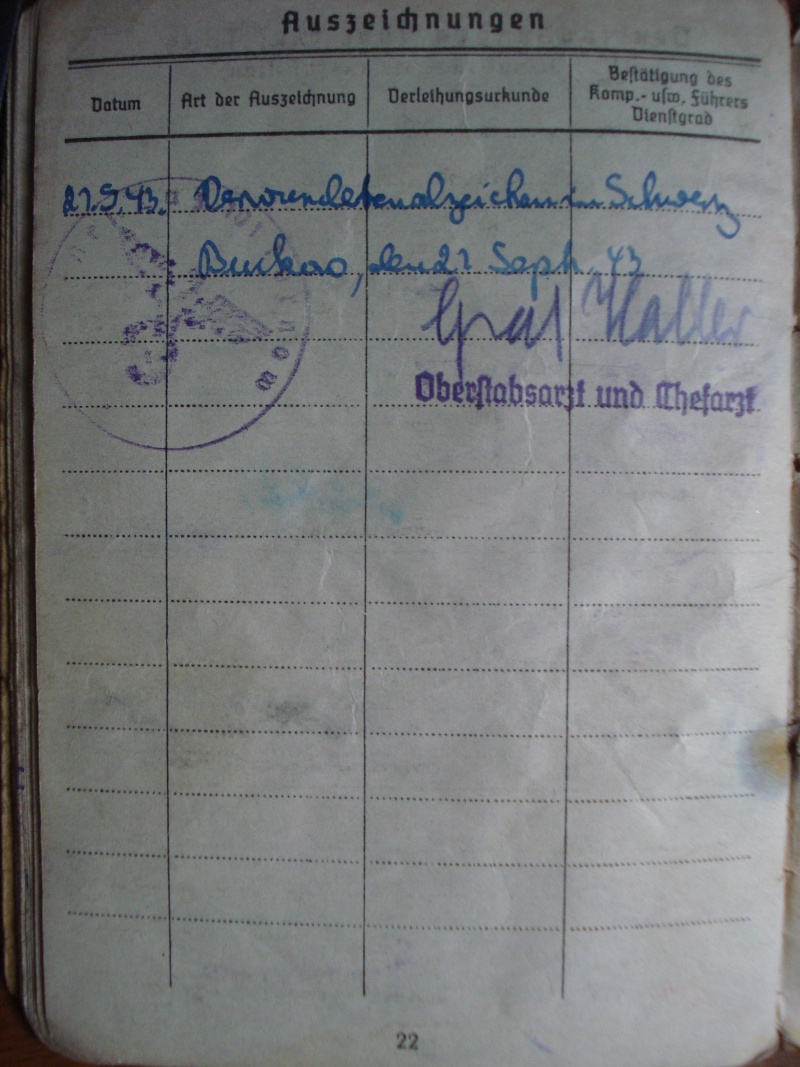 Auszeichnungen
Datum Art der Auszeichnung Verleihungsurkunde Bestätigung des Komp.- usw. Führers Dienstgrad
27.9.43. Verwundetenabzeichen in Schwarz
Buckow, den 27 Sept. 43
Graf Haller
Oberstabsarzt und Chefarzt
22